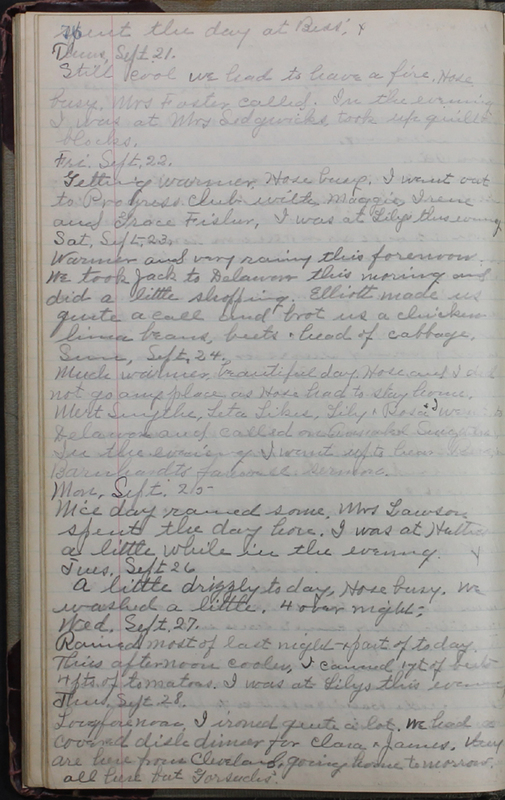 76
spent the day at Bess', x
Thurs, Sept. 21.
Still cool we had to have a fire, Hose
busy, Mrs Foster called. In the evening
I was at Mrs Sedgwicks, took up quilt
blocks.
Fri. Sept. 22.
Getting warmer, Hose busy. I went out
to Progress Club with Maggie, Irene
and Grace Fisher, I was at Lilys this evening
Sat, Sept. 23.
Warmer and very rainy this forenoon.
We took Jack to Delawon this moring and
did a little shopping. Elliott made us
quite a call and brot us a chicken
lima beans, beets & head of cabbage.
Sun, Sept. 24.
Much warmer, beautiful day, Hose and I did
not go any place as Hose had to stay home.
Mert Smythe, Leta Likes, Lily & Rosa & I went to
Delawon and called on
In the evening I went up to hear
Barnhard to farwell sermon.
Mon, Sept. 25
Nice day, rained some, Mrs Lawson
spent the day here. I was at
a little while in the evening. x
Tues, Sept 26
A little drizzly to day, Hose busy. We
washed a little. 4 over night.
Wed. Sept. 27.
Rained most of last night & part of today.
This afternoon cooler, I canned 1 qt of beets
4 pts. of tomatoes. I was at Lilys this evening
Thur, Sept. 28.
I ironed quite a lot. We had a
covered dish dinner for Clara & James. They
are here from Cleveland, going home tomorrow.
all here but Gorsuchs'.